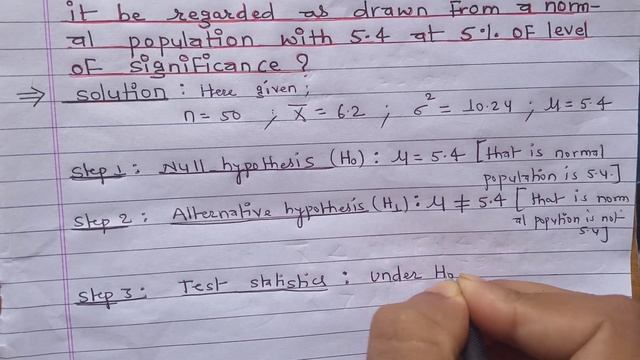 it be regarded as drawn from a norm-
al population with 5.4 at 5% of level
of significance ?
⇒ solution : Here given ;
n = 50 ; X̄ = 6.2 ; σ² = 10.24 ; μ = 5.4
Step 1 : Null hypothesis (H₀) : μ = 5.4 [that is normal
population is 5.4.]
Step 2 : Alternative hypothesis (H₁) : μ ≠ 5.4 [that is norm
al popvtion is not
5.4]
Step 3 : Test statistics : under H₀